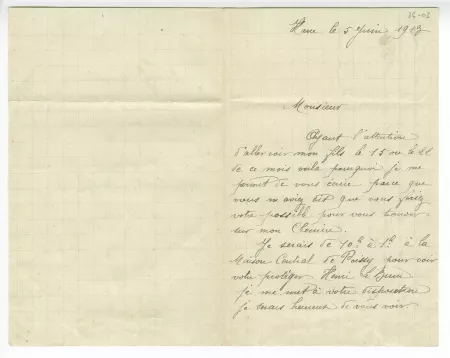 36-03
Havre le 5 Juin 1903
Monsieur
Ayant l'attention
d'aller voir mon fils le 15 ou le 21
de ce mois voila pourquoi je me
permet de vous écrire parce que
vous m'aviez dit que vous feriez
votre possible pour vous
sur mon
Je serais de 10h à 1h à la
Maison Central de Poissy pour voir
votre protéger Henri
je me met à votre disposition
je serais heureuse de vous voir.